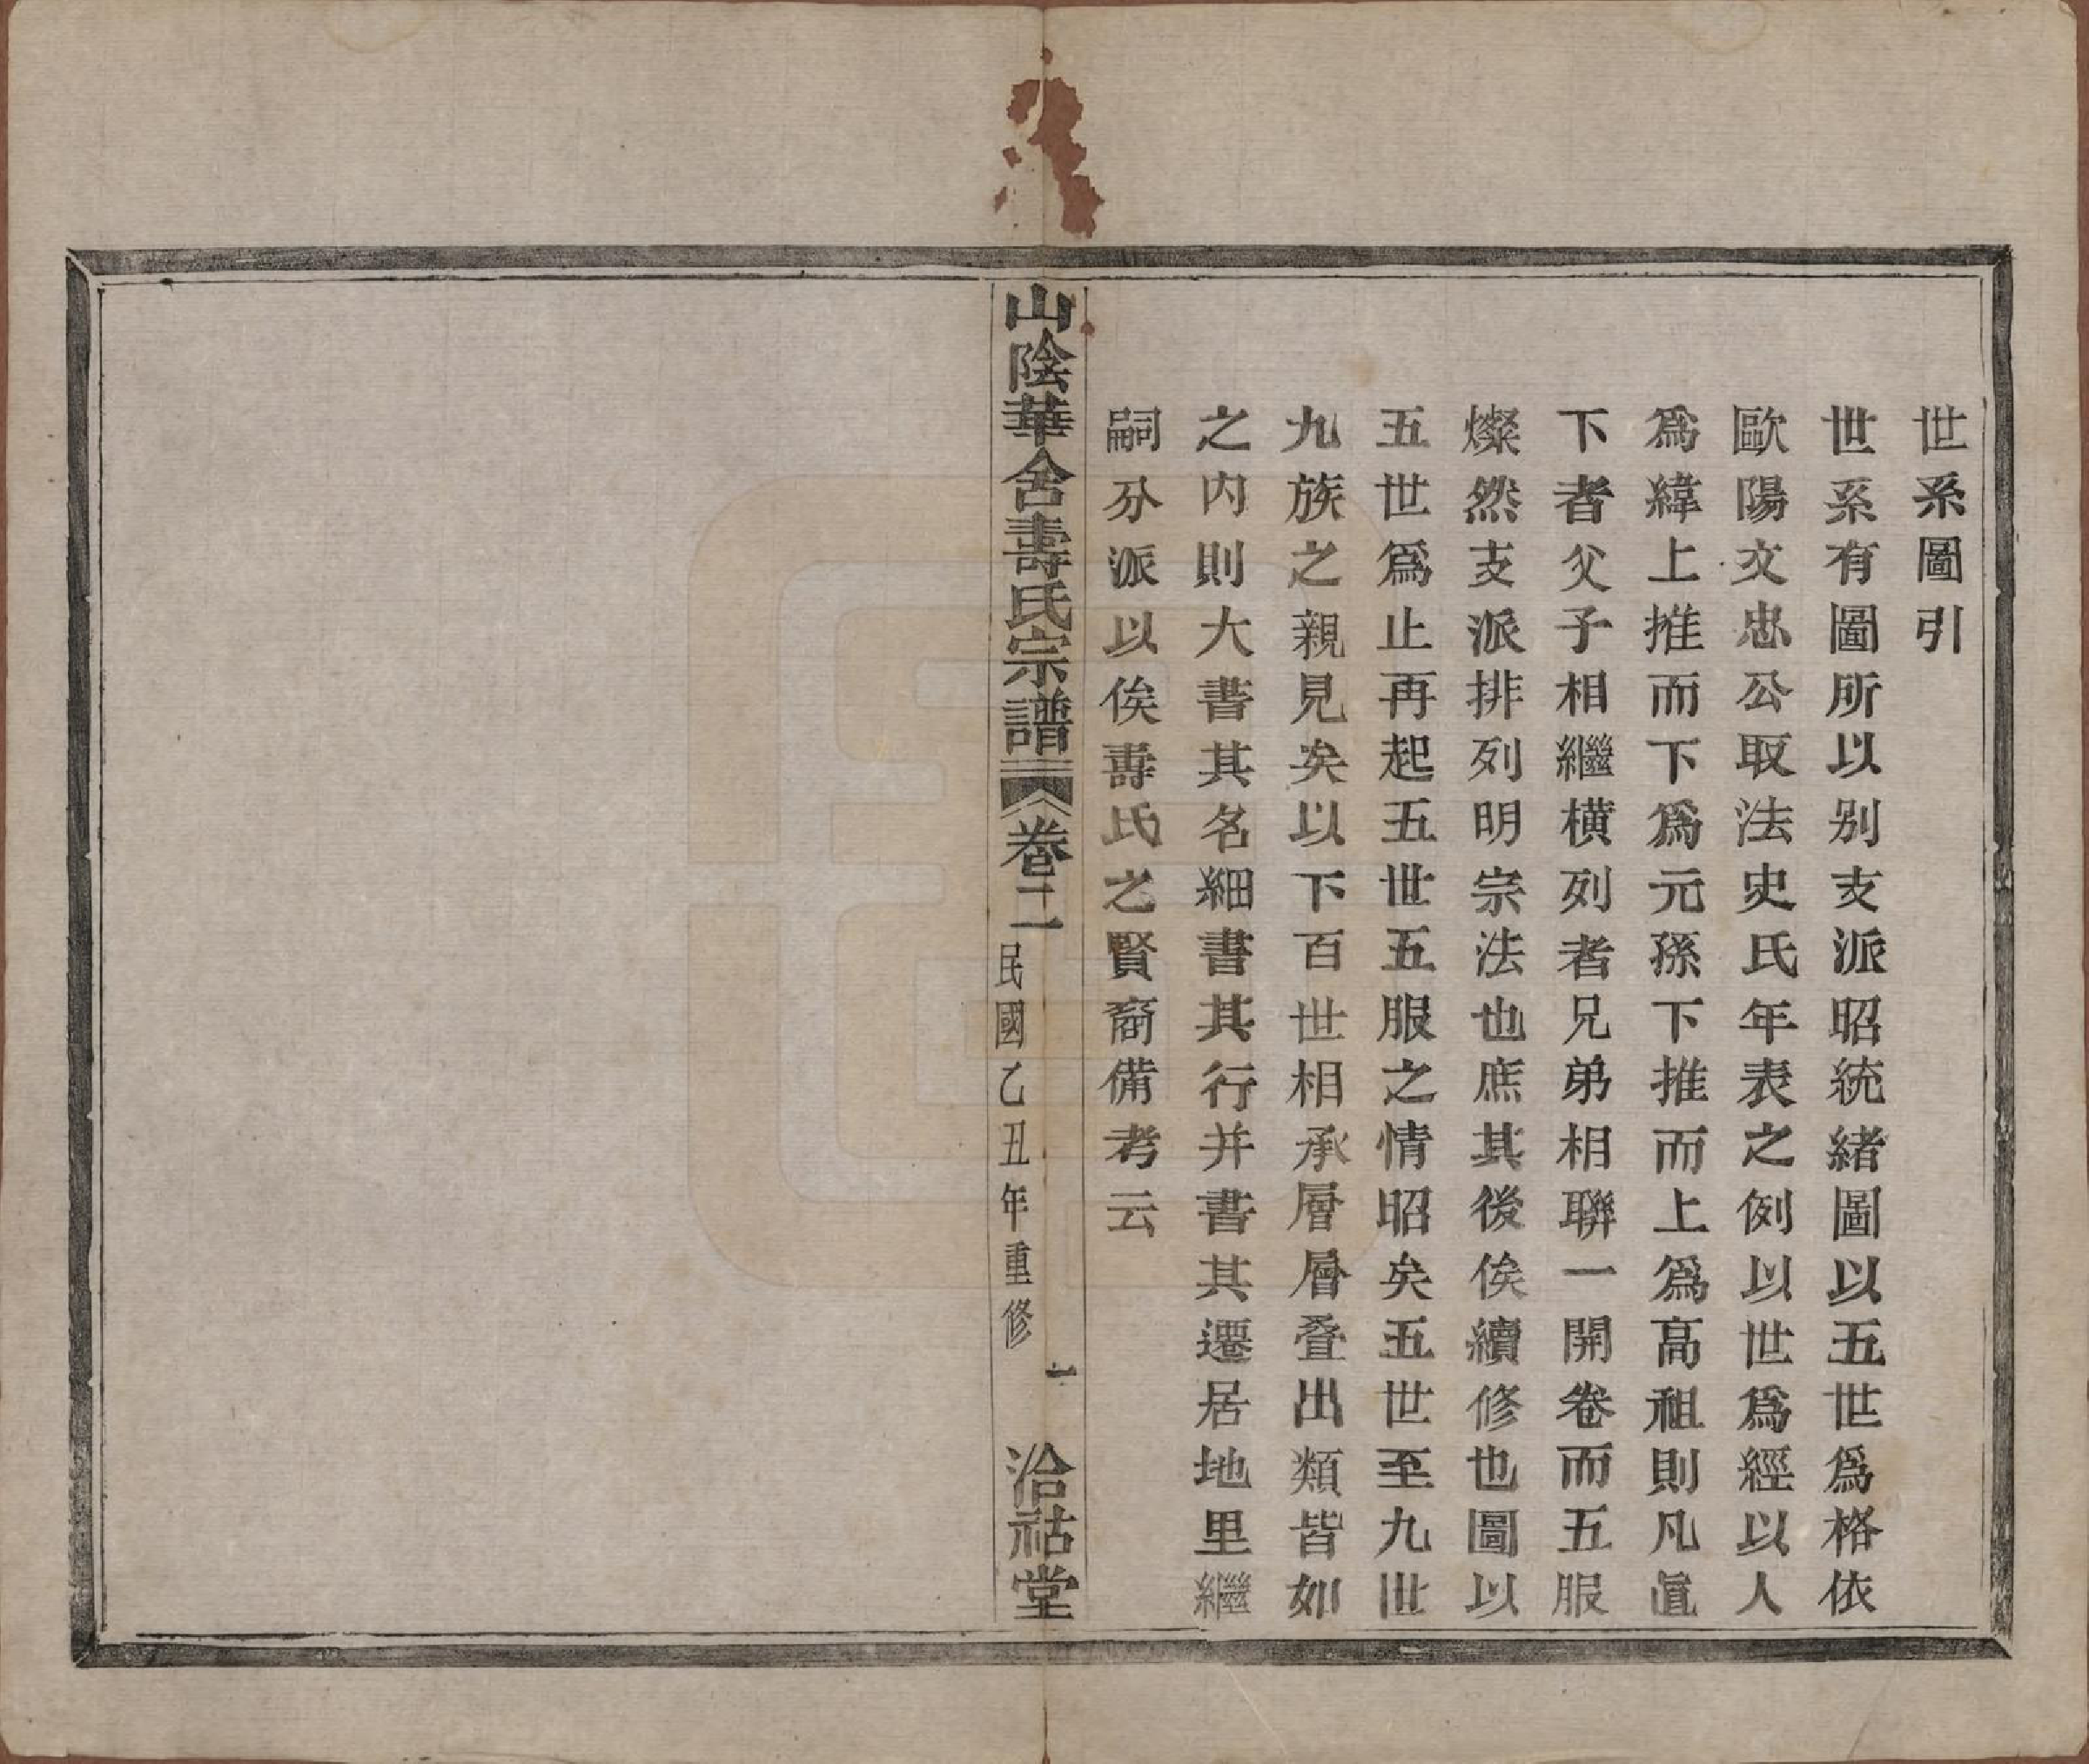 世系圖引
世系有圖所以别支派昭統緒圖以五世爲格依
歐陽文忠公取法史氏年表之例以世爲經以人
爲緯上推而下爲元孫下推而上爲高祖則凡直
下者父子相繼横列者兄弟相聯一開卷而五服
燦然支派排列明宗法也庶其後俟續修也圖以
五世爲止再起五世五服之情昭矣五世至九世
九族之親見矣以下百世相承層層叠出類皆如
之内則大書其名細書其行并書其遷居地里繼
嗣分派以俟壽氏之賢裔備考云
山陰華舍壽氏宗譜
卷二
民國乙丑年重修
一
洽祜堂